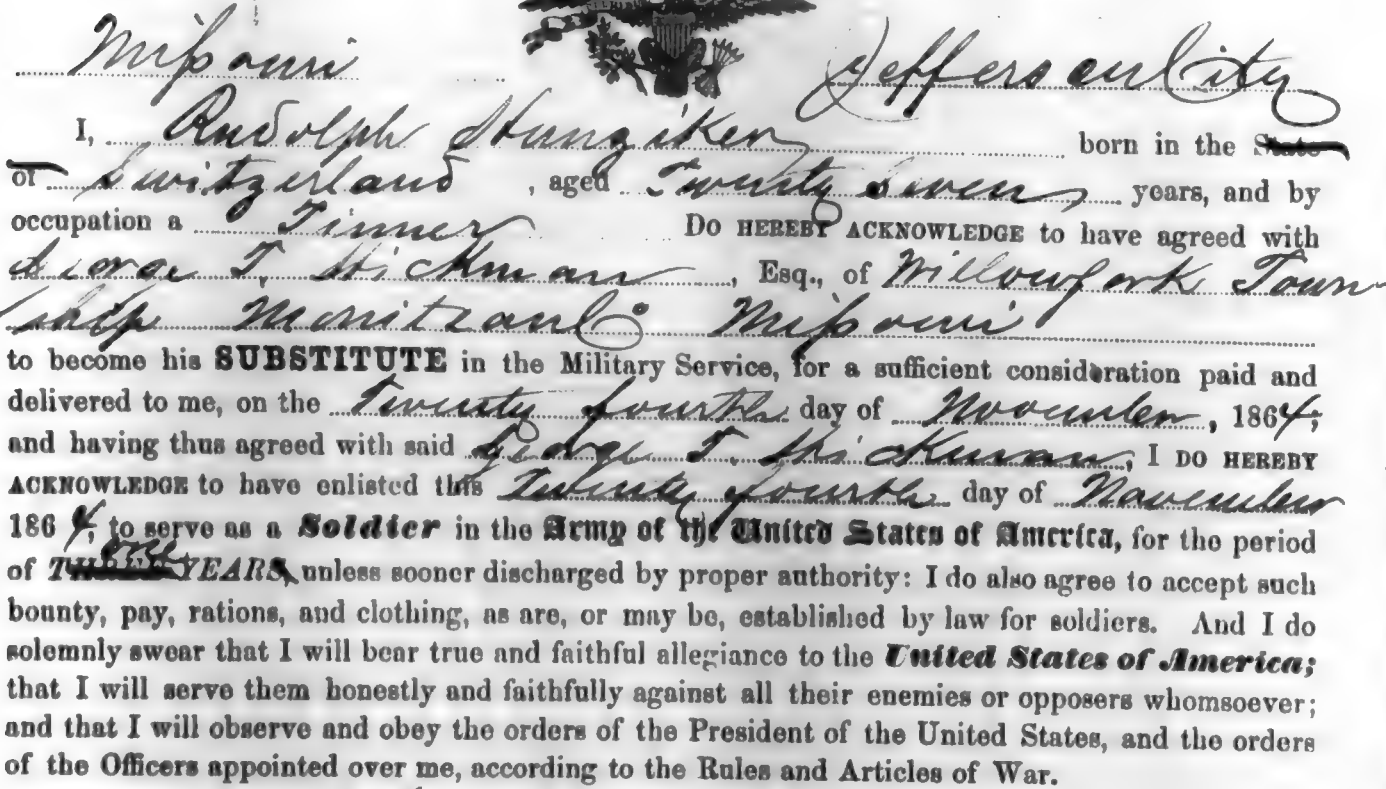 Missouri Jefferson City
I, Rudolph Hunziker born in the State
of Switzerland, aged Twenty Seven years, and by
occupation a Tinner Do HEREBY ACKNOWLEDGE to have agreed with
George T. Hickman, Esq., of Willowfork Town
ship Monitzau Co Missouri
to become his SUBSTITUTE in the Military Service, for a sufficient consideration paid and
delivered to me, on the Twenty fourth day of November, 1864;
and having thus agreed with said George T. Hickman, I DO HEREBY
ACKNOWLEDGE to have enlisted this Twenty fourth day of November
1864, to serve as a Soldier in the Army of the United States of America, for the period
of THREE one YEARS, unless sooner discharged by proper authority: I do also agree to accept such
bounty, pay, rations, and clothing, as are, or may be, established by law for soldiers. And I do
solemnly swear that I will bear true and faithful allegiance to the United States of America;
that I will serve them honestly and faithfully against all their enemies or opposers whomsoever;
and that I will observe and obey the orders of the President of the United States, and the orders
of the Officers appointed over me, according to the Rules and Articles of War.